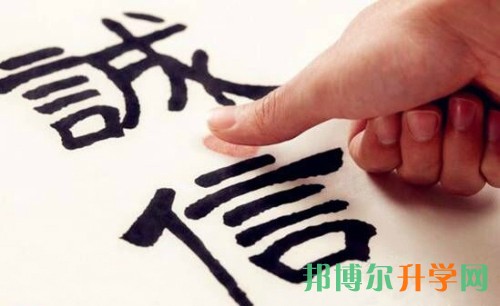 誠
信
邦博尔升学网